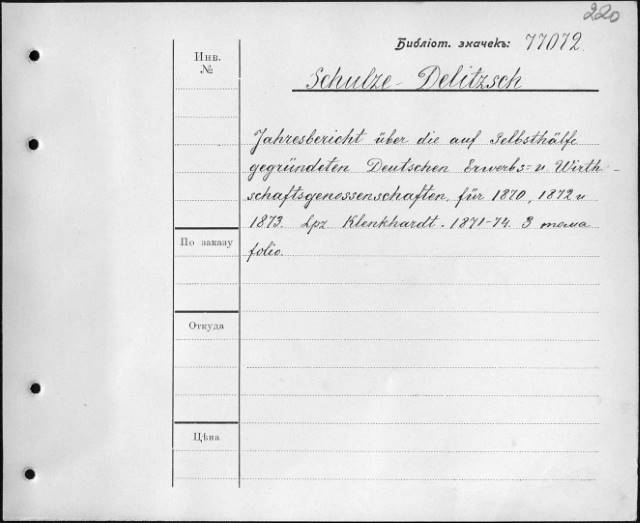 220
Библiот. значекъ: 77072.
Инв.
№
Schulze-Delitzsch
Jahresbericht über die auf Selbsthülfe
gegründeten Deutschen Erwerbs= u. Wirth-
schaftsgenossenschaften, für 1870, 1872 u
1873. Lpz Klenkhardt. 1871-74. 3 тома
folio.
По заказу
Откуда
Цѣна